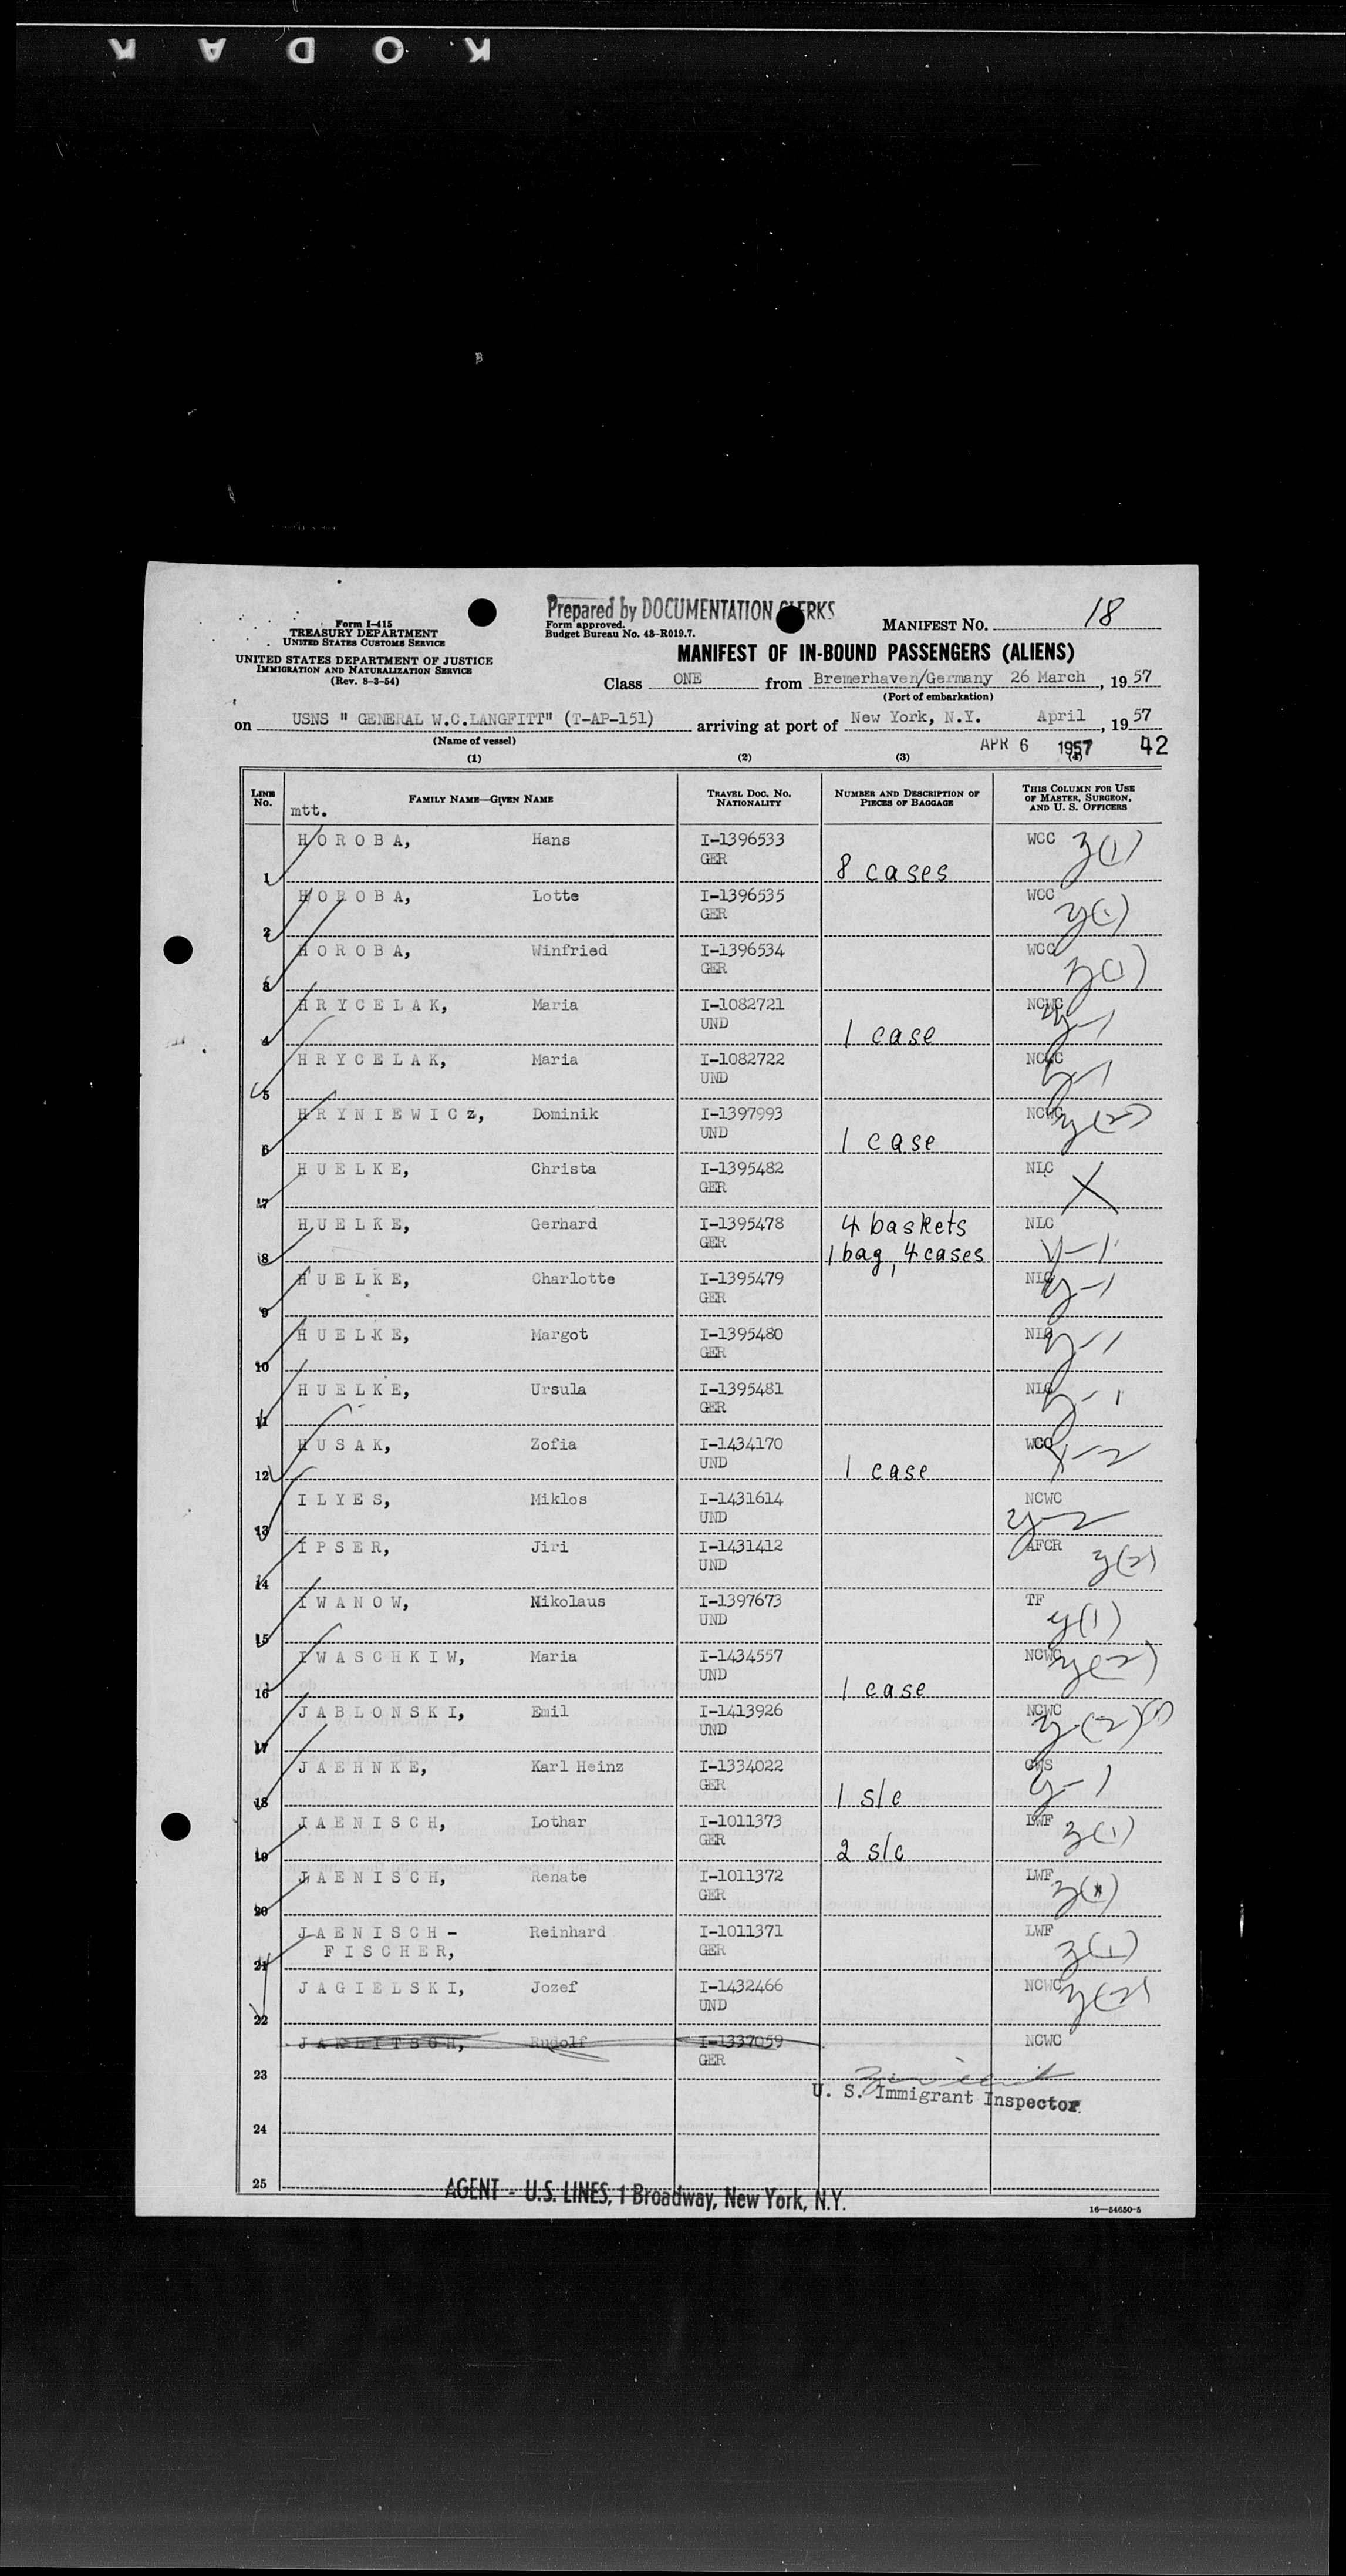 KODAK
Prepared by DOCUMENTATION CLERKS
Form I-415
TREASURY DEPARTMENT
UNITED STATES CUSTOMS SERVICE
UNITED STATES DEPARTMENT OF JUSTICE
IMMIGRATION AND NATURALIZATION SERVICE
(Rev. 8-3-54)
Form approved.
Budget Bureau No. 43-R019.7.
MANIFEST No. 18
MANIFEST OF IN-BOUND PASSENGERS (ALIENS)
Class ONE from Bremerhaven/Germany 26 March, 1957
(Port of embarkation)
on USNS " GENERAL W.C.LANGFITT" (T-AP-151) arriving at port of New York, N.Y. April, 1957
(Name of vessel)
APR 6 1957 42
(1) (2) (3) (4)
LINE No. FAMILY NAME—GIVEN NAME TRAVEL DOC. No. NATIONALITY NUMBER AND DESCRIPTION OF PIECES OF BAGGAGE THIS COLUMN FOR USE OF MASTER, SURGEON, AND U. S. OFFICERS
mtt.
1 HOROBA, Hans I-1396533 GER 8 cases WCC 3(1)
2 HOROBA, Lotte I-1396535 GER WCC y(1)
3 HOROBA, Winfried I-1396534 GER WCC 3(1)
4 HRYCELAK, Maria I-1082721 UND 1 case NCWC y-1
5 HRYCELAK, Maria I-1082722 UND NCWC y-1
6 HRYNIEWICz, Dominik I-1397993 UND 1 case NCWC y(2)
7 HUELKE, Christa I-1395482 GER NLC X
8 HUELKE, Gerhard I-1395478 GER 4 baskets 1 bag, 4 cases NLC y-1
9 HUELKE, Charlotte I-1395479 GER NLC y-1
10 HUELKE, Margot I-1395480 GER NLC y-1
11 HUELKE, Ursula I-1395481 GER NLC y-1
12 HUSAK, Zofia I-1434170 UND 1 case WCC y-2
13 ILYES, Miklos I-1431614 UND NCWC y-2
14 IPSER, Jiri I-1431412 UND AFCR y(2)
15 IWANOW, Nikolaus I-1397673 UND TF y(1)
16 IWASCHKIW, Maria I-1434557 UND 1 case NCWC y(2)
17 JABLONSKI, Emil I-1413926 UND NCWC y(2)(1)
18 JAEHNKE, Karl Heinz I-1334022 GER 1 s/c CWS y-1
19 JAENISCH, Lothar I-1011373 GER 2 s/c LWF 3(1)
20 JAENISCH, Renate I-1011372 GER LWF
21 JAENISCH-FISCHER, Reinhard I-1011371 GER LWF 3(1)
22 JAGIELSKI, Jozef I-1432466 UND NCWC y(2)
23 JAKLITSCH, Rudolf I-1337059 GER NCWC
U. S. Immigrant Inspector
24
25
AGENT - U.S. LINES, 1 Broadway, New York, N.Y.
16—54650-5